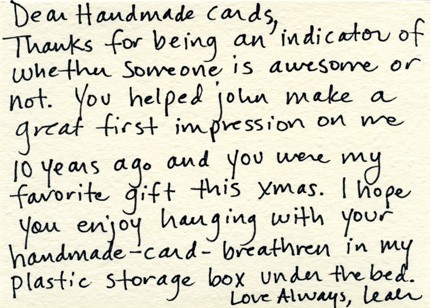 Dear Handmade Cards,
Thanks for being an indicator of
whether someone is awesome or
not. You helped john make a
great first impression on me
10 years ago and you were my
favorite gift this xmas. I hope
you enjoy hanging with your
handmade-card-breathren in my
plastic storage box under the bed.
Love Always, Leah